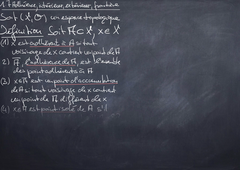 1.7 Adhérence, intérieur, extérieur, frontière
Soit (X, O) un espace topologique
Définition Soit A ⊂ X, x ∈ X
(1) x est adhérent à A si tout
voisinage de x contient un point de A
2) Ā, l'adhérence de A, est l'ensemble
des points adhérents à A
(3) x ∈ A est point d'accumulation
de A si tout voisinage de x contient
un point de A différent de x
(4) x ∈ A est point isolé de A s'il